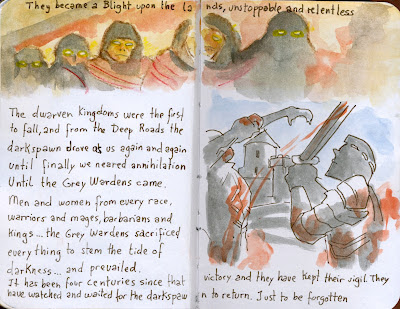 They became a Blight upon the lands, unstoppable and relentless
The dwarven Kingdoms were the first
to fall, and from the Deep Roads the
darkspawn drove at us again and again
until finally we neared annihilation
Until the Grey Wardens came.
Men and women from every race,
warriors and mages, barbarians and
Kings... the Grey Wardens sacrificed
everything to stem the tide of
darkness... and prevailed.
It has been four centuries since that victory and they have kept their sigil. They
have watched and waited for the darkspawn to return. Just to be forgotten